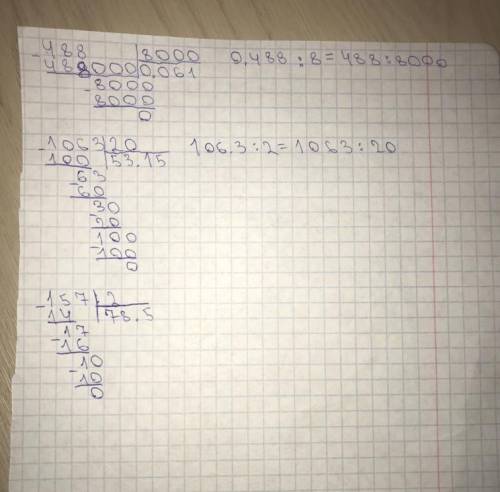 -488 | 8000    0,488 : 8 = 488 : 8000
488000 | 0,061
-8000
8000
0
-1063 | 20    106.3 : 2 = 1063 : 20
100 | 53.15
-63
60
-30
20
-100
100
0
-157 | 2
14 | 78.5
-17
16
-10
10
0